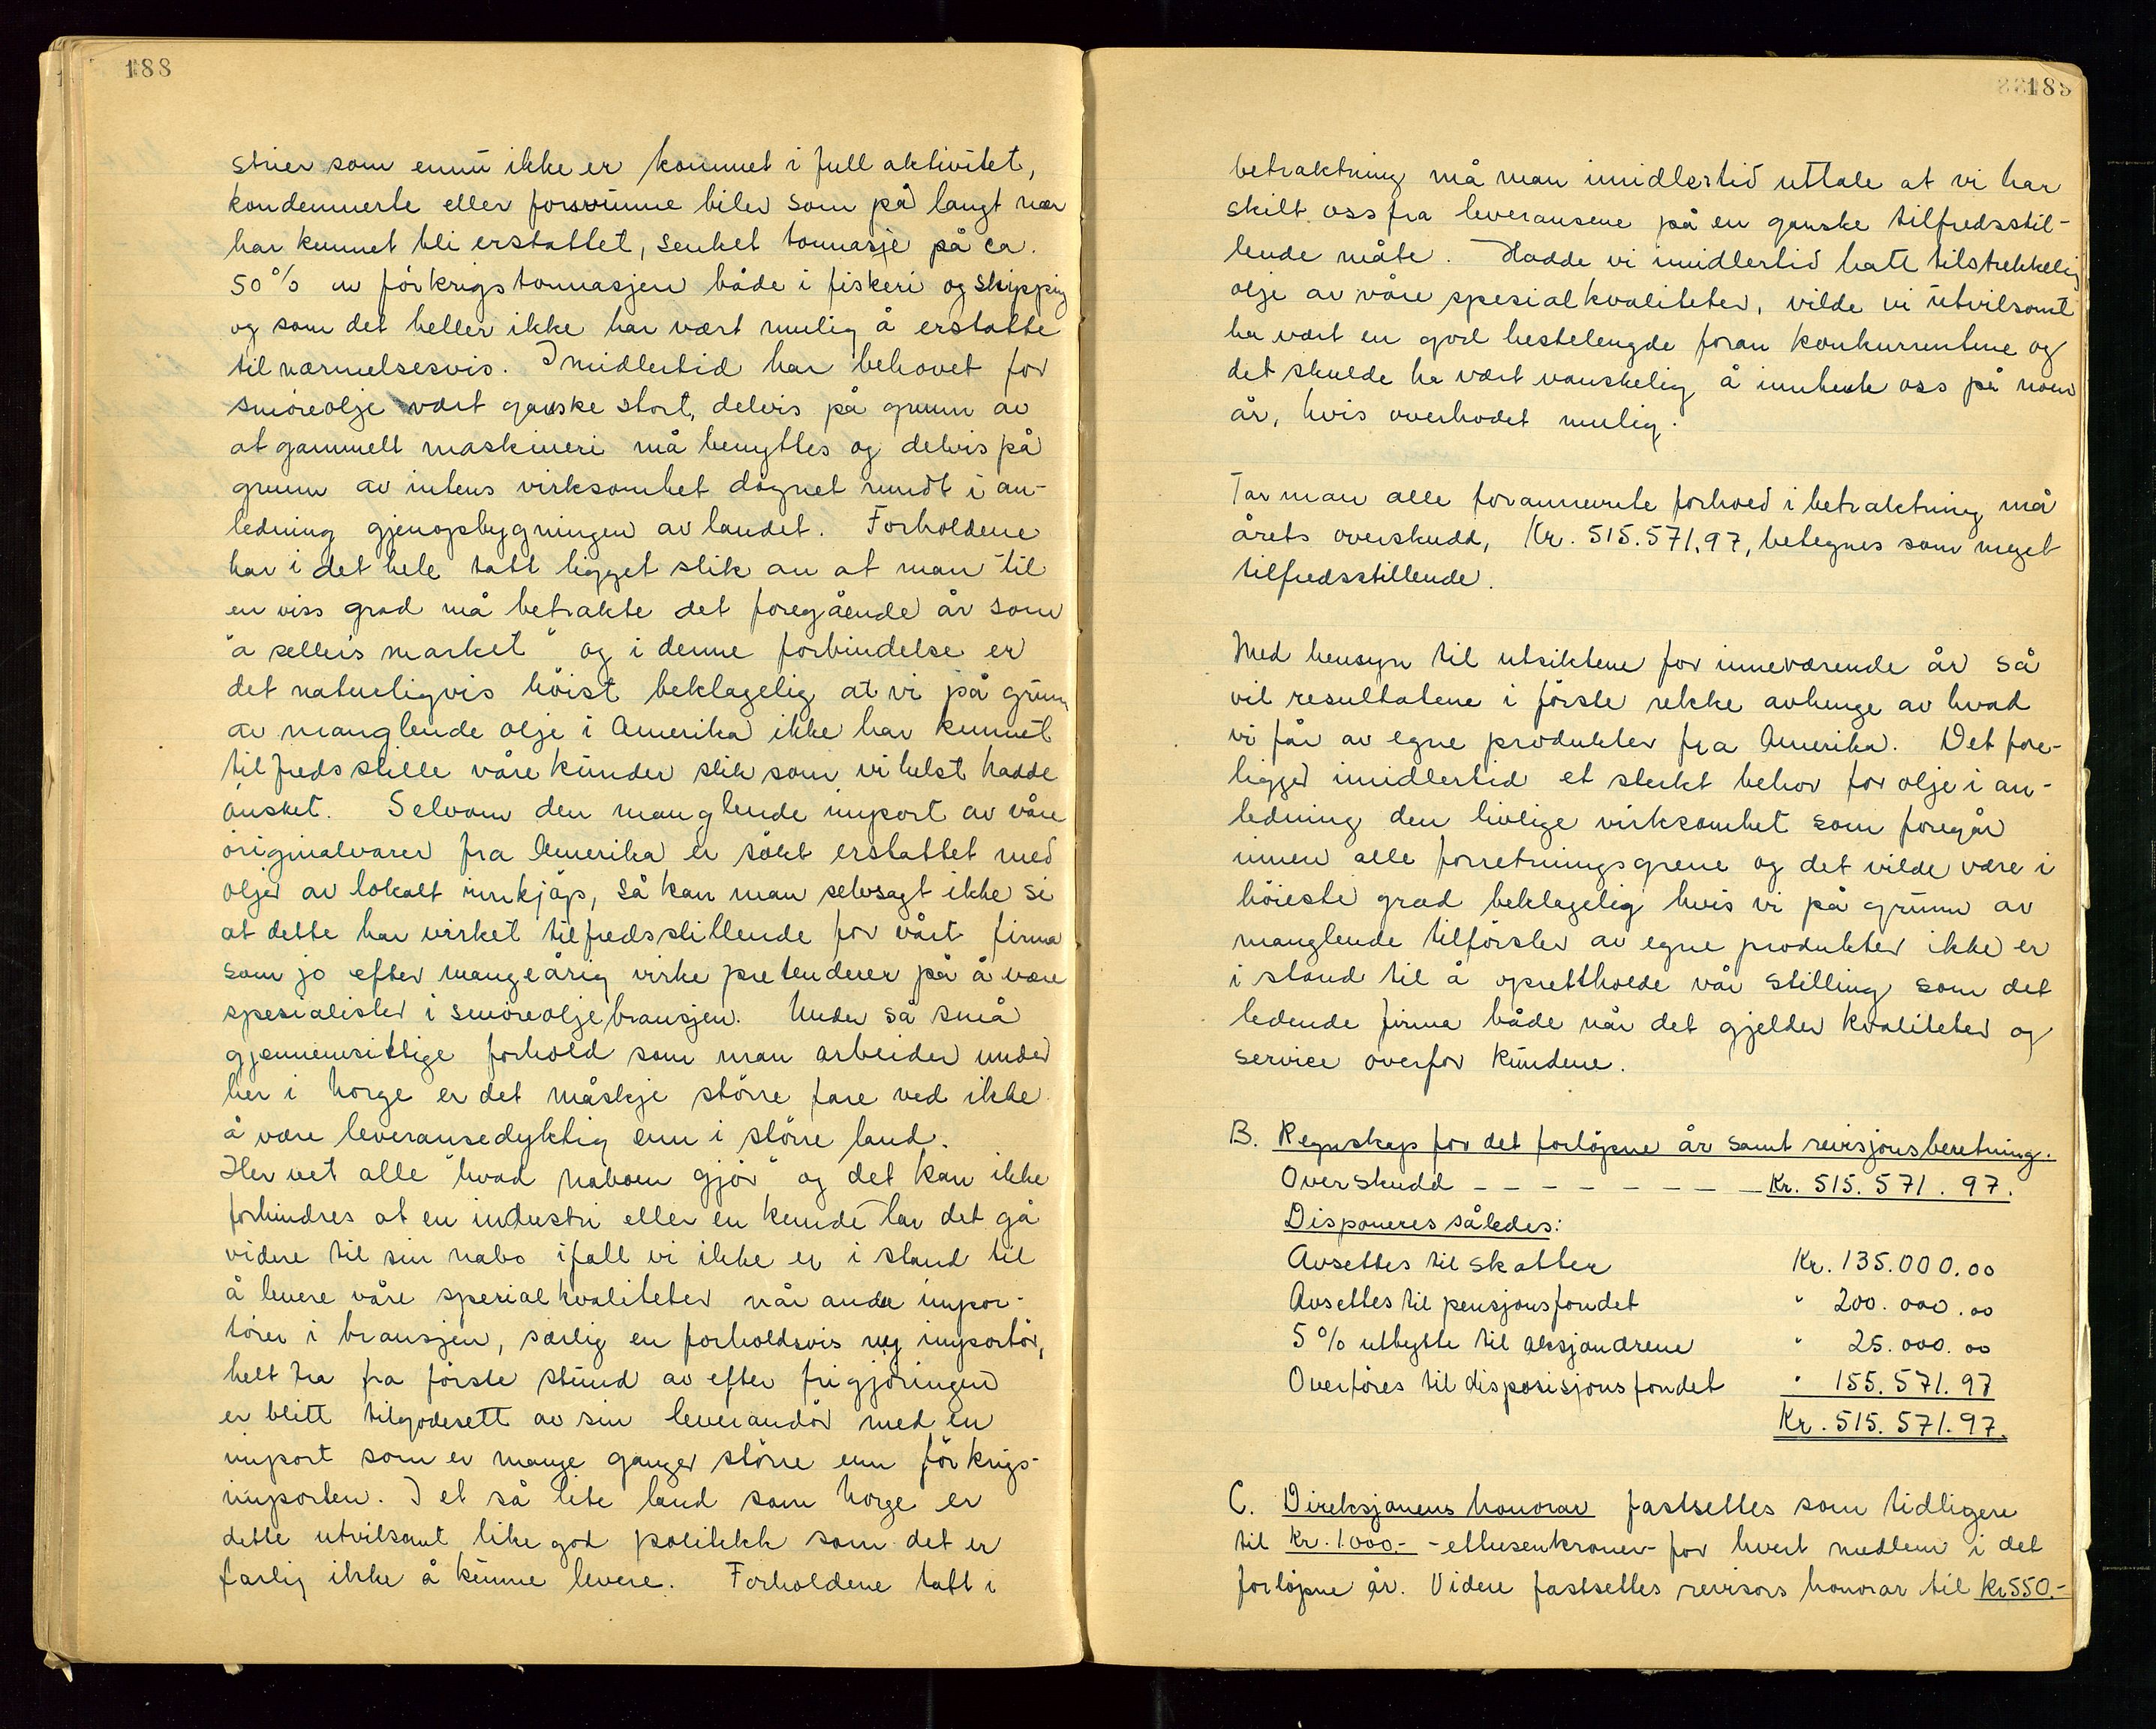 188
strier som ennu ikke er kommet i full aktivitet,
kondemnerte eller forsvunne biler som på langt nær
har kunnet bli erstattet, senket tonnasje på ca.
50% av förkrigstonnasjen både i fiskeri og shipping
og som det heller ikke har vært mulig å erstatte
tilnærmelsesvis. Imidlertid har behovet for
smöreolje vært ganske stort, delvis på grunn av
at gammelt maskineri må benyttes og delvis på
grunn av intens virksomhet dögnet rundt i an-
ledning gjenopbygningen av landet. Forholdene
har i det hele tatt ligget slik an at man til
en viss grad må betrakte det foregående år som
"a seller's market" og i denne forbindelse er
det naturligvis höist beklagelig at vi på grunn
av manglende olje i Amerika ikke har kunnet
tilfredsstille våre kunder slik som vi helst hadde
önsket. Selvom den manglende import av våre
originalvarer fra Amerika er sökt erstattet med
oljer av lokalt innkjöp, så kan man selvsagt ikke si
at dette har virket tilfredsstillende for vårt firma
som jo efter mangeårig virke pretenderer på å være
spesialister i smöreoljebransjen. Under så små
gjennemsiktige forhold som man arbeider under
her i Norge er det måskje större fare ved ikke
å være leveransedyktig enn i större land.
Her vet alle "hvad naboen gjör" og det kan ikke
forhindres at en industri eller en kunde lar det gå
videre til sin nabo ifall vi ikke er i stand til
å levere våre spesialkvaliteter når andre impor-
törer i bransjen, særlig en forholdsvis ny importör,
helt fra förste stund av efter frigjöringen
er blitt tilgodesett av sin leverandör med en
import som er mange ganger större enn förkrigs-
importen. I et så lite land som Norge er
dette utvilsomt like god politikk som det er
farlig ikke å kunne levere. Forholdene tatt i
189
betraktning må man imidlertid uttale at vi har
skilt oss fra leveransene på en ganske tilfredsstil-
lende måte. Hadde vi imidlertid hatt tilstrekkelig
olje av våre spesialkvaliteter, vilde vi utvilsomt
ha vært en god hestelengde foran konkurrentene og
det skulde ha vært vanskelig å innhente oss på noen
år, hvis overhodet mulig.
Tar man alle forannevnte forhold i betraktning må
årets overskudd, Kr. 515.571.97, betegnes som meget
tilfredsstillende.
Med hensyn til utsiktene for inneværende år så
vil resultatene i förste rekke avhenge av hvad
vi får av egne produkter fra Amerika. Det fore-
ligger imidlertid et sterkt behov for olje i an-
ledning den livlige virksomhet som foregår
innen alle forretningsgrene og det vilde være i
höieste grad beklagelig hvis vi på grunn av
manglende tilförsler av egne produkter ikke er
i stand til å oprettholde vår stilling som det
ledende firma både når det gjelder kvaliteter og
service overfor kundene.
B. Regnskap for det forlöpne år samt revisjonsberetning.
Overskudd - - - - - - - - Kr. 515.571.97.
Disponeres således:
Avsettes til skatter Kr. 135.000.00
Avsettes til pensjonsfondet " 200.000.00
5% utbytte til aksjonærene " 25.000.00
Overföres til disposisjonsfondet " 155.571.97
Kr. 515.571.97.
C. Direksjonens honorar fastsettes som tidligere
til Kr. 1.000.- -ettusenkroner- for hvert medlem i det
forlöpne år. Videre fastsettes revisors honorar til Kr 550.-